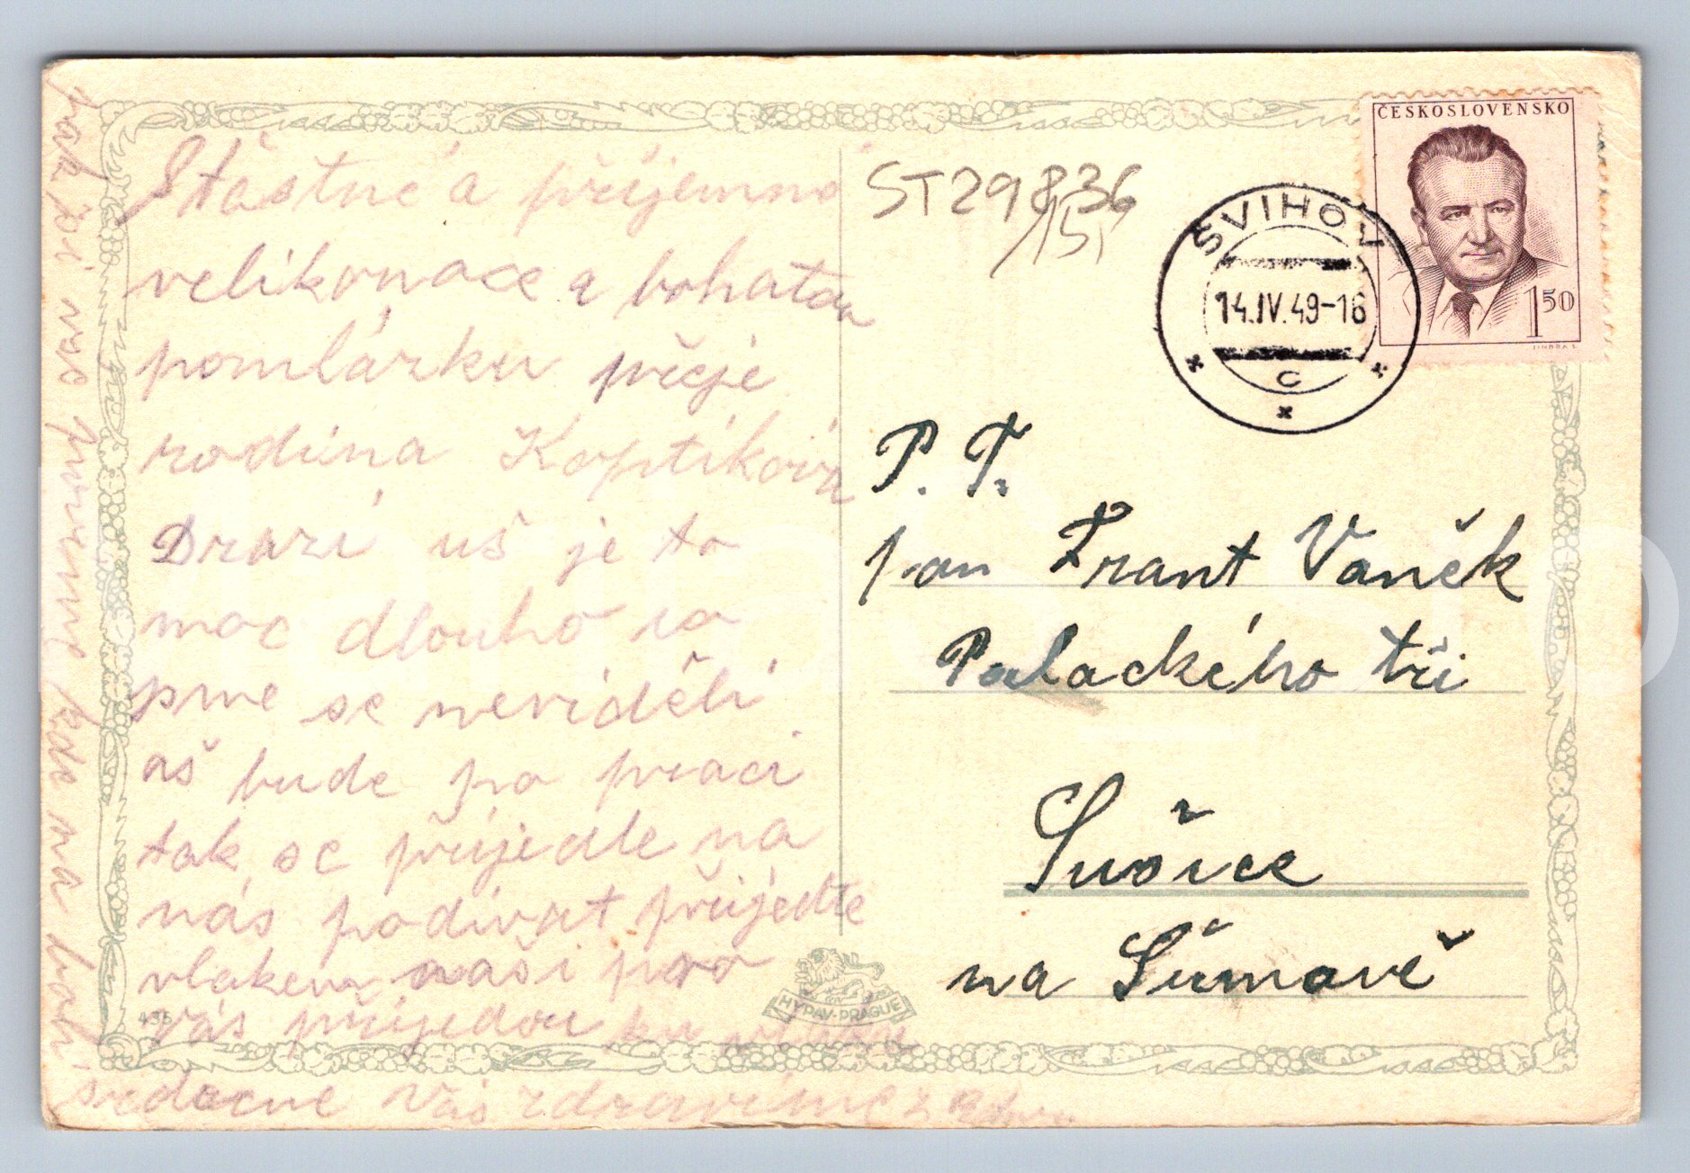 Štastné a příjemné
velikonoce a bohatou
pomlázku přeje
rodina Koptíkova
Drazí uš je to
moc dlouho co
sme se neviděli
aš bude po práci
tak se přijedte na
nás podívat přijedte
vlakem naši pro
vás přijedou ku vlaku
srdečne Vás zdravíme z
ST29836
/15,
ČESKOSLOVENSKO
1 50
SVIHOV
14.IV.49-16
C
P. T.
pan Frant Vaněk
Palackého tři
Sušice
na Šumavě
HYPAV-PRAGUE
435